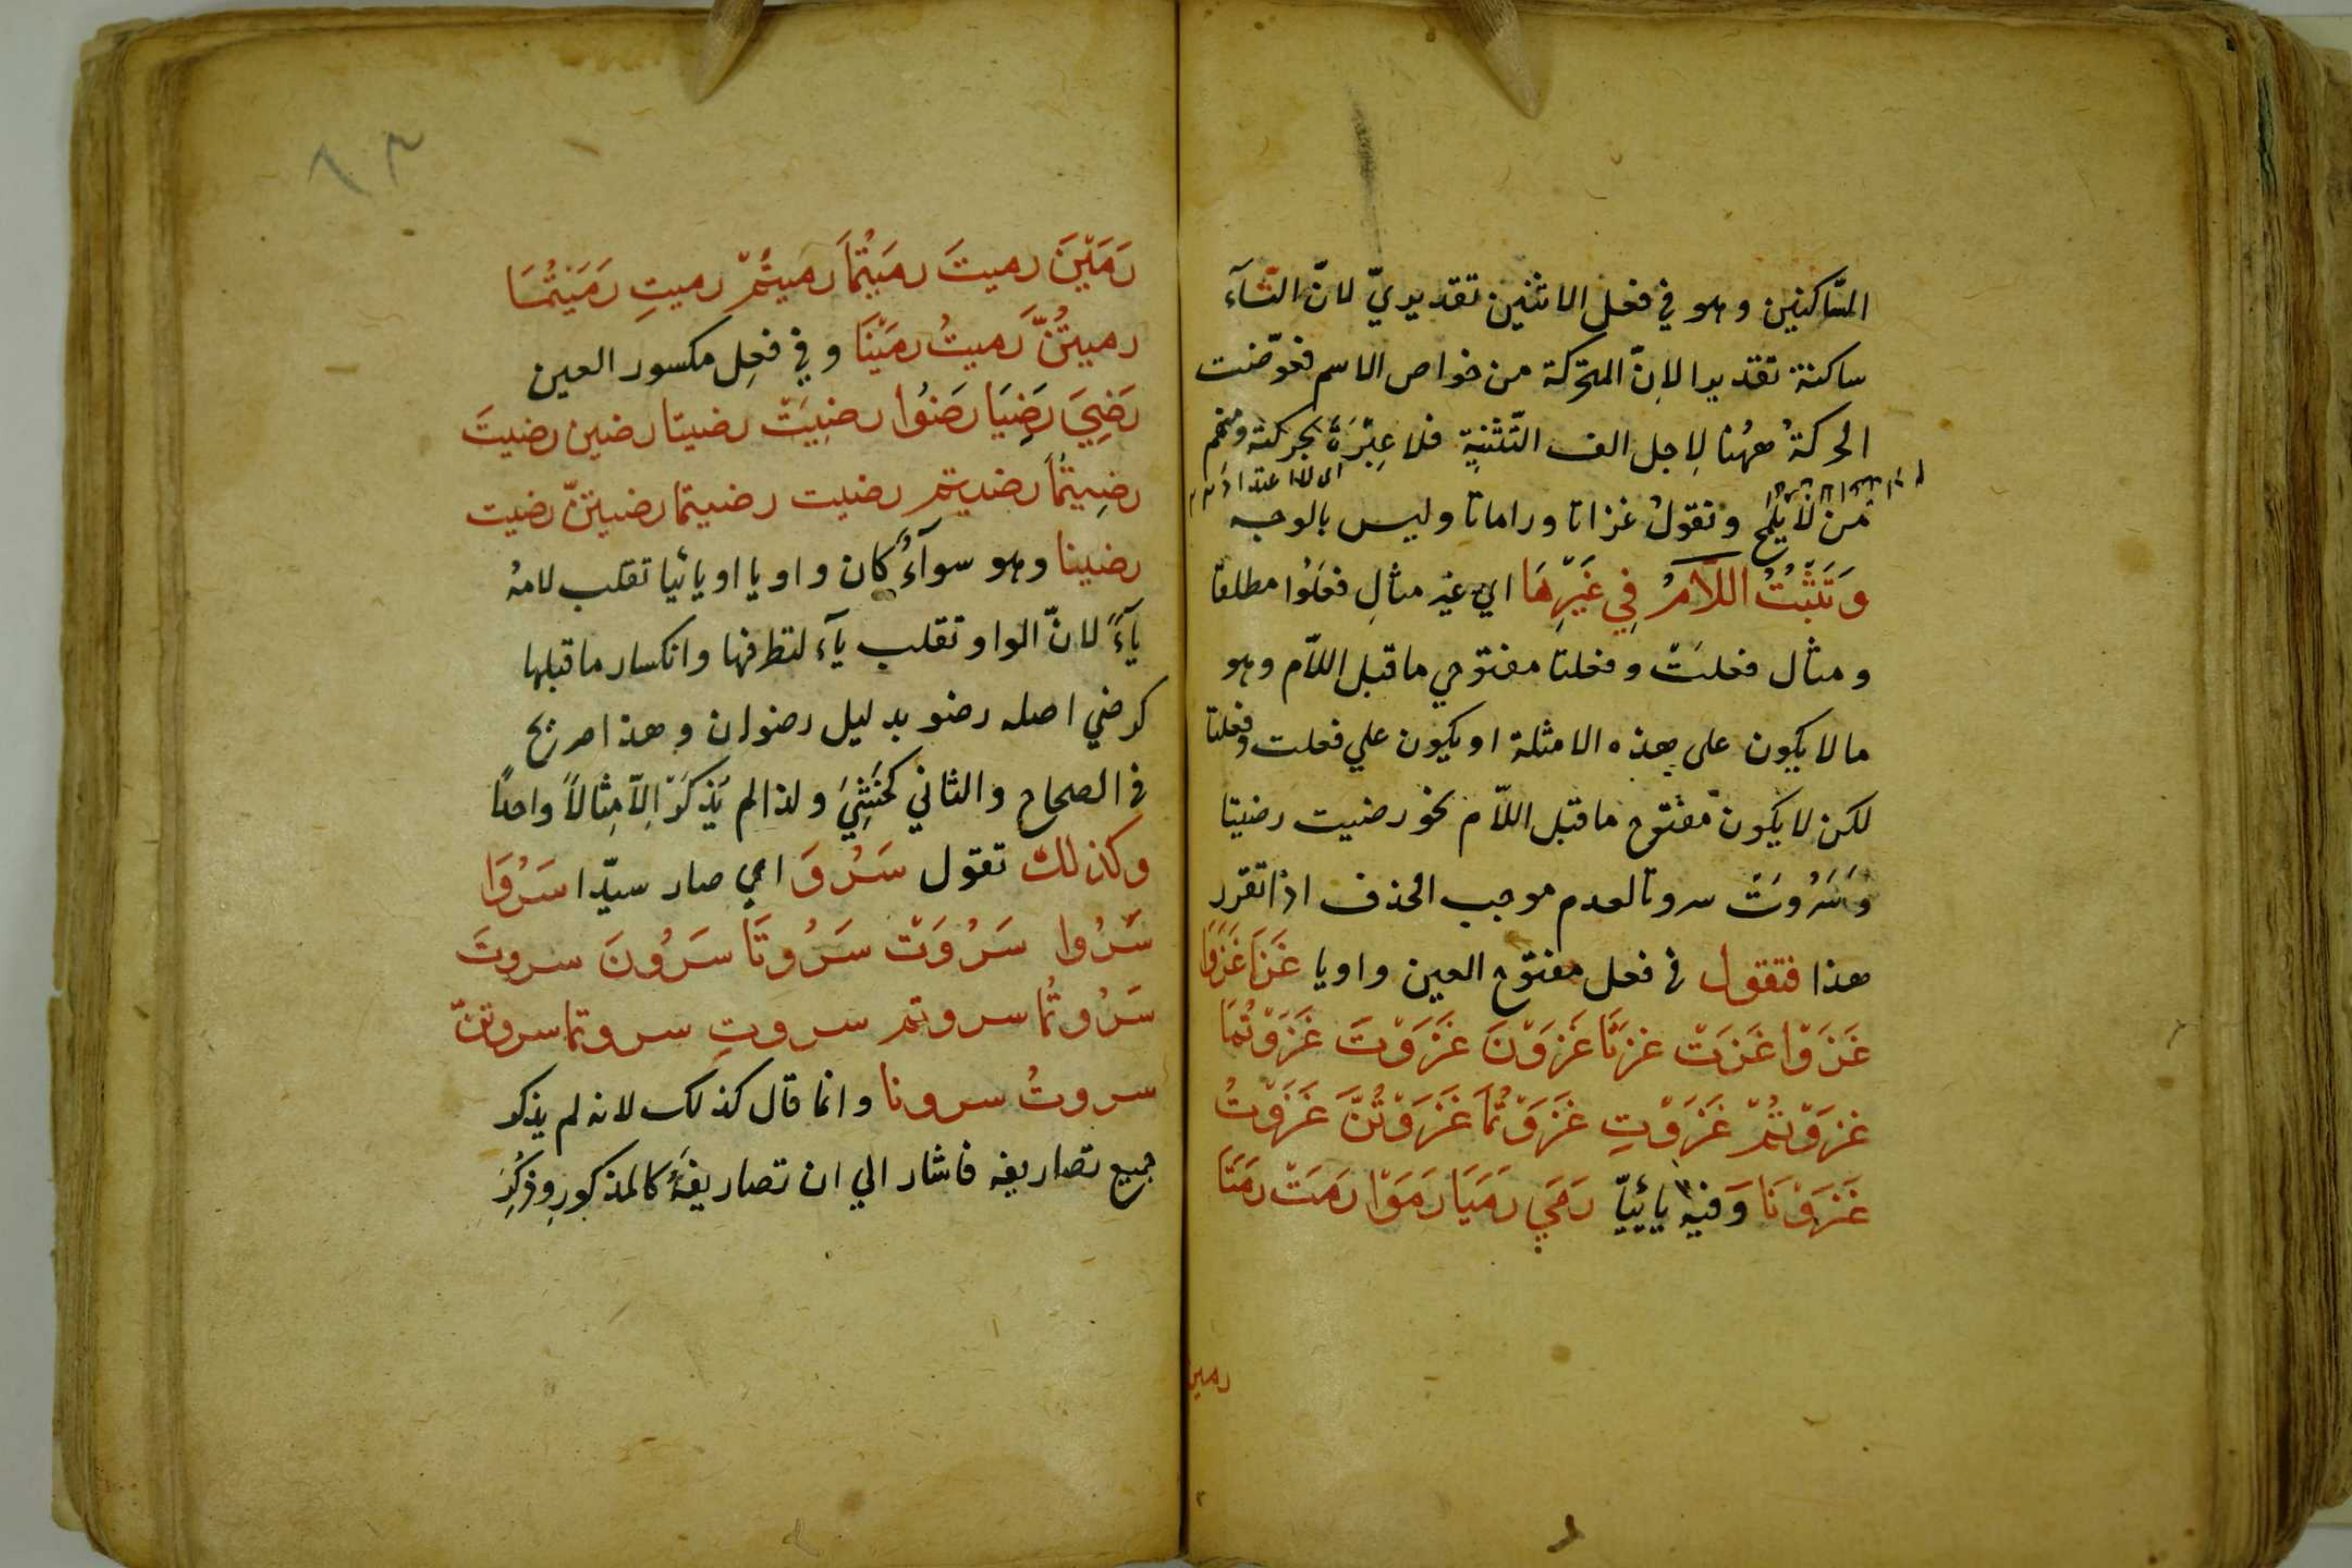 السّاكنين وهو في فعل الاثنين تقديريّ لانّ التّآء
ساكنة تقديرا لانّ المتحركة من خواص الاسم فعوّضت
الحركةُ ههُنا لِاجل الف التّثنيةِ فلا عِبْرَةَ بحركته ومنهم
من لا يلمح وتقولُ غزاتا وراماتا وليس بالوجه
وَتَثْبُتُ اللّامُ فِي غَيْرِهَا اي غير مثالِ فعَلُوا مطلقا
ومثال فعلَتْ وفعلتا مفتوحي ماقبل اللّام وهو
مالا يكون على هذه الامثلة او يكون علي فعلت وفعلتا
لكن لا يكون مفتوح ماقبل اللّام نحو رضيت رضيتا
وَسَرُوَتْ سروتا لعدم موجب الحذف اذا تقرر
هذا فتقول في فعل مفتوح العين واويا غَزَا غَزَوَا
غَزَوْا غَزَتْ غزتَا غَزَوْنَ غَزَوْتَ غَزَوْتُمَا
غزَوْتُمْ غَزَوْتِ غَزَوْتُمَا غَزَوْتُنَّ غَزَوْتُ
غَزَوْنَا وَفيه يائيّا رَمَي رَمَيَا رَمَوْا رَمَتْ رَمَتَا
رمين
٦٣
رَمَيْنَ رميتَ رمَيْتُمَا رميتُمْ رميتِ رَمَيْتُمَا
رميتُنَّ رَميتُ رمَيْنَا وفي فعِل مكسور العين
رَضِيَ رَضِيَا رَضُوا رضِيَتْ رضيتا رضين رضيتَ
رضِيتُمَا رضيتم رضيت رضيتما رضيتنّ رضيت
رضينا وهو سوآءٌ كان واويا او يائيا تقلب لامهُ
يآءً لانّ الواو تقلب يآء لتطرفها وانكسار ماقبلها
كرضي اصله رضو بدليل رضوان وهذا صريح
في الصحاح والثاني كخَشِيَ ولذا لم يَذكر اِلّا مِثالاً واحداً
وكذلك تقول سَرُوَ اي صار سيّدا سَرُوَا
سَرُوا سَرُوَتْ سَرُوتَا سَرُونَ سروتَ
سَرُوتُما سروتم سروتِ سروتما سروتنّ
سروتُ سرونا وانما قال كذلك لانه لم يذكر
جميع تصاريفه فاشار الي ان تصاريفَهُ كالمذكورِ وذكِرَ